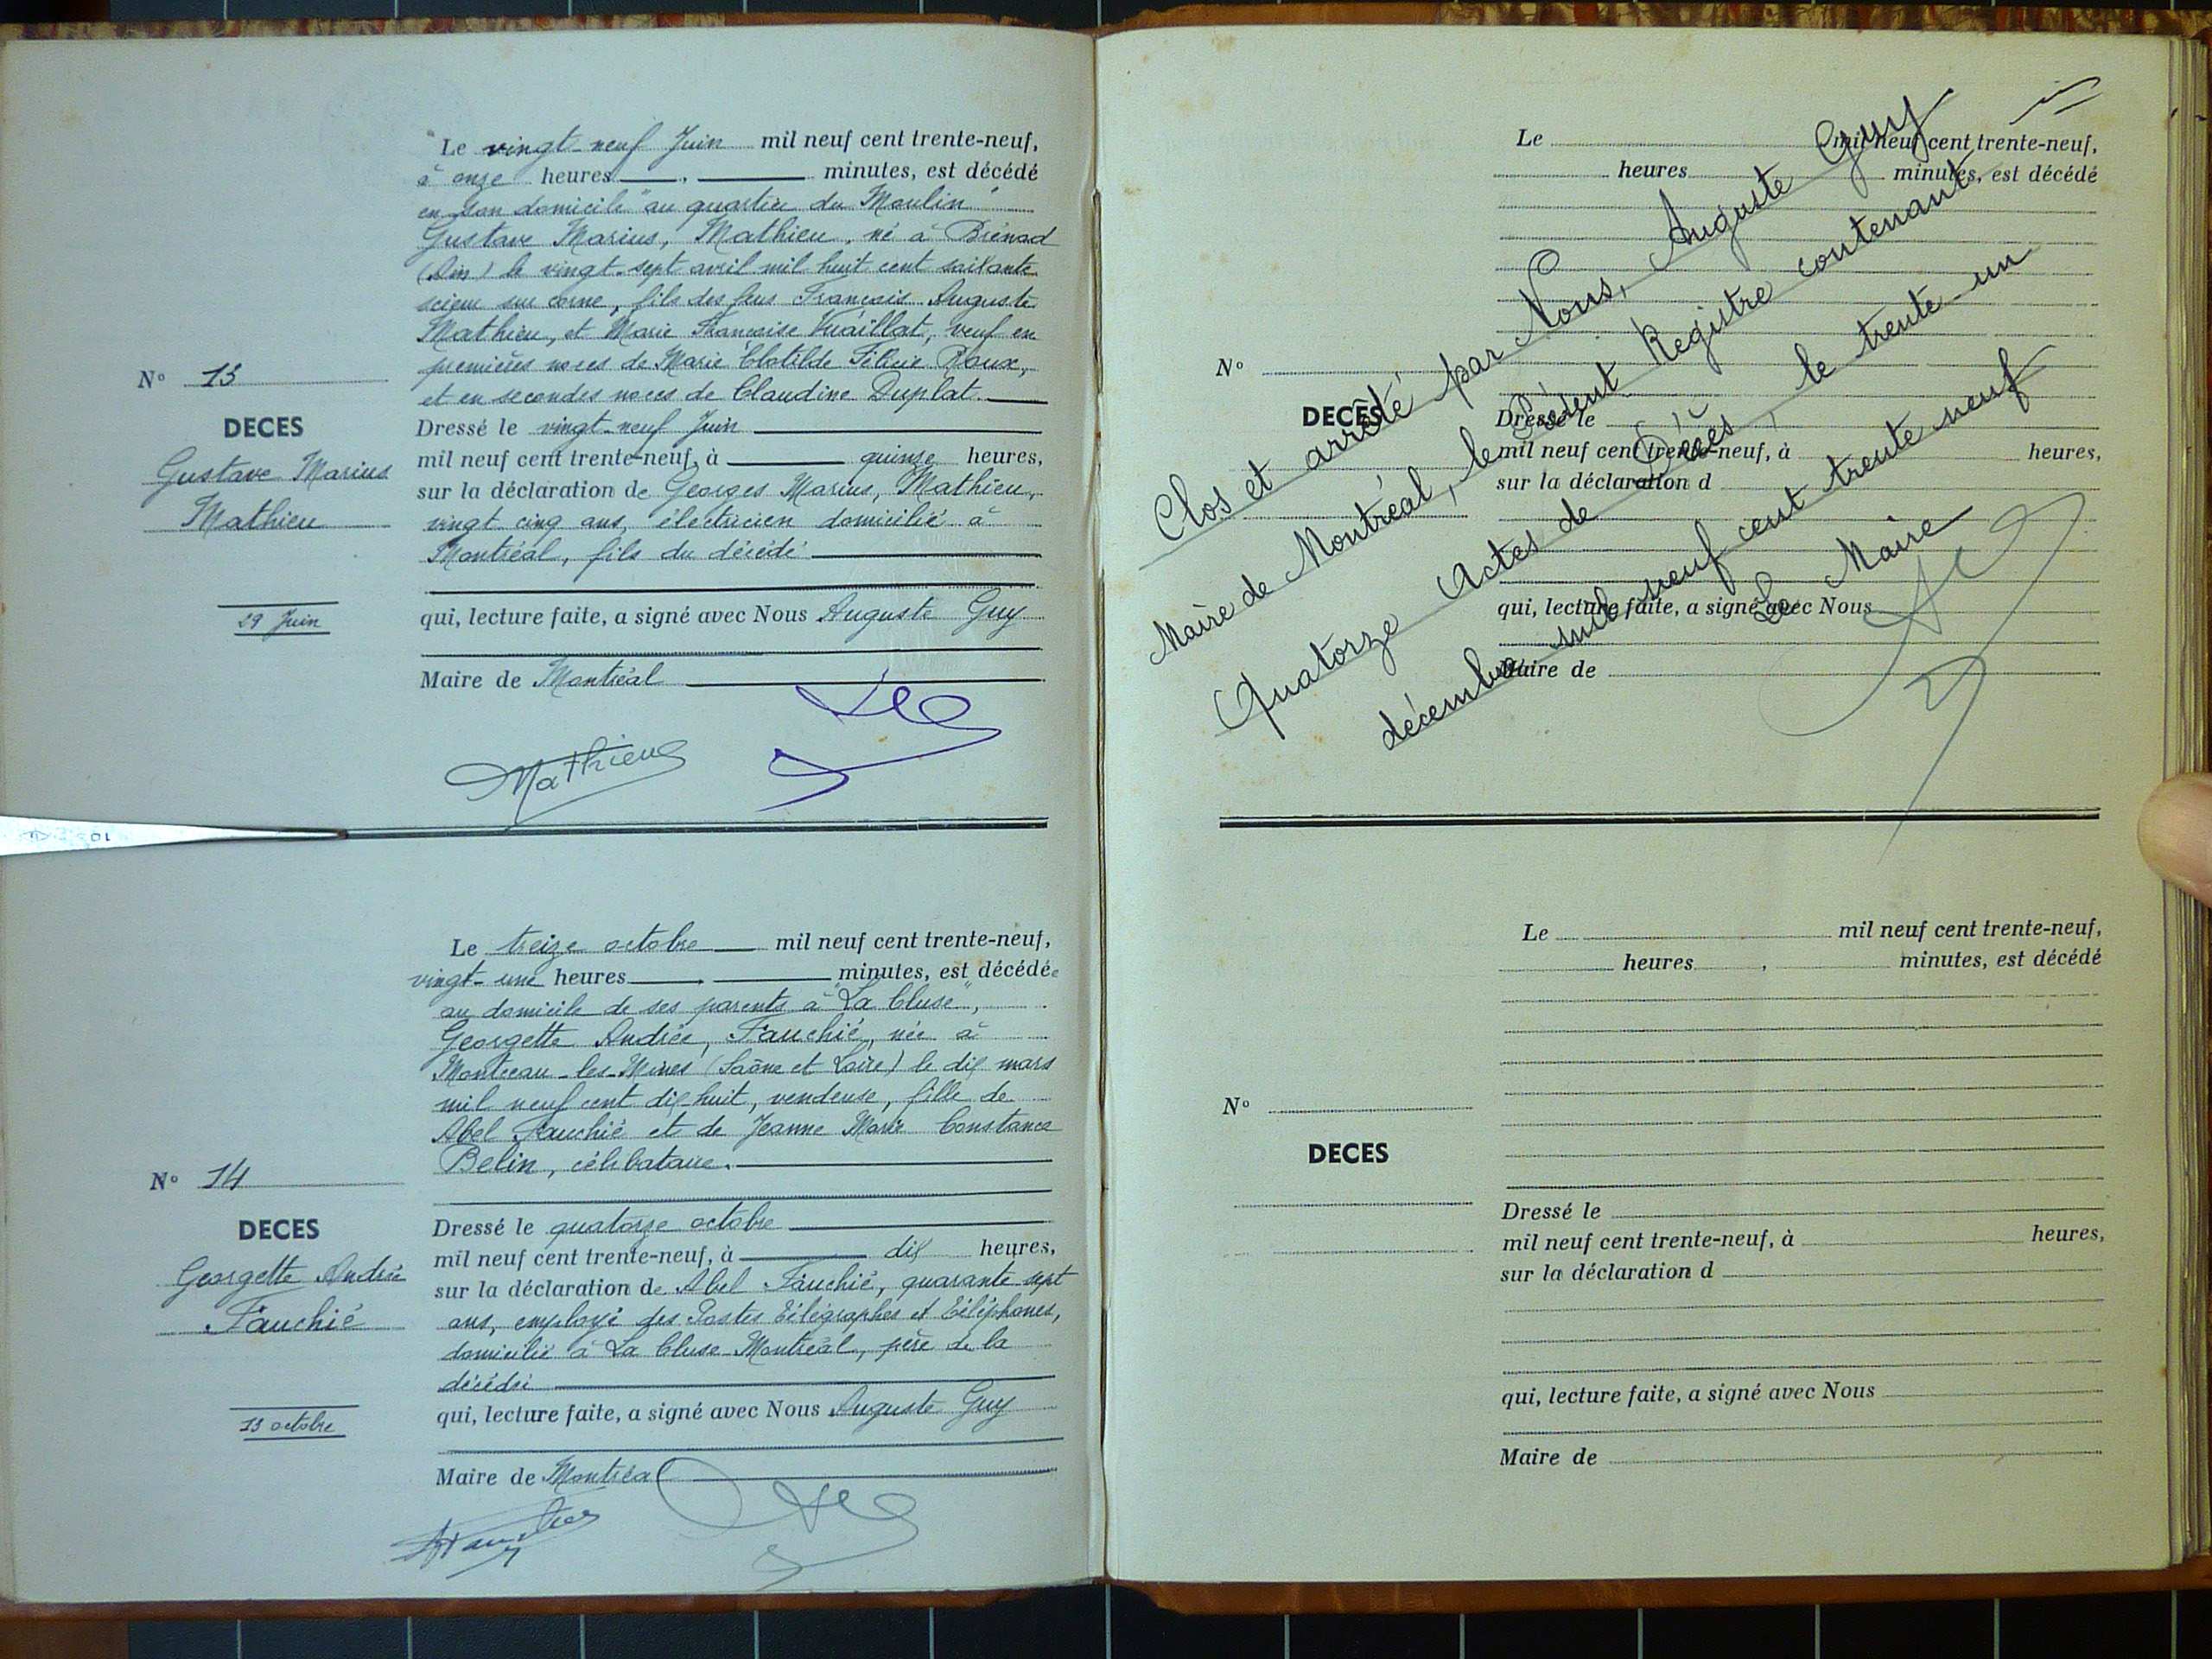 Le vingt-neuf Juin mil neuf cent trente-neuf,
à onze heures , minutes, est décédé
en son domicile "au quartier du Moulin"
Gustave Marius, Mathieu, né à Brénod
(Ain) le vingt-sept avril mil huit cent soixante
scieur sur corne, fils des feus François Auguste
Mathieu, et Marie Françoise Vuaillat, veuf en
premières noces de Marie Clotilde Félicie Roux,
et en secondes noces de Claudine Duplat.
Nº 13
DECES
Gustave Marius
Mathieu
29 Juin
Dressé le vingt-neuf Juin
mil neuf cent trente-neuf, à quinze heures,
sur la déclaration de Georges Marius, Mathieu,
vingt cinq ans, électricien domicilié à
Montréal, fils du décédé
qui, lecture faite, a signé avec Nous Auguste Guy
Maire de Montréal
Mathieu
Le treize octobre mil neuf cent trente-neuf,
vingt-une heures , minutes, est décédée
au domicile de ses parents à "La Cluse",
Georgette Andrée, Fauchié, née à
Montceau-les-Mines (Saône et Loire) le dix mars
mil neuf cent dix-huit, vendeuse, fille de
Abel Fauchié et de Jeanne Marie Constance
Belin, célibataire.
Nº 14
DECES
Georgette Andrée
Fauchié
13 octobre
Dressé le quatorze octobre
mil neuf cent trente-neuf, à dix heures,
sur la déclaration de Abel Fauchié, quarante sept
ans, employé des Postes Télégraphes et Téléphones,
domicilié à La Cluse-Montréal, père de la
décédée
qui, lecture faite, a signé avec Nous Auguste Guy
Maire de Montréal
Le mil neuf cent trente-neuf,
heures minutes, est décédé
Nº
DECES
Dressé le
mil neuf cent trente-neuf, à heures,
sur la déclaration d
qui, lecture faite, a signé avec Nous
Maire de
Clos et arrêté par Nous, Auguste Guy
Maire de Montréal, le présent Registre contenant
Quatorze Actes de Décès, le trente-un
décembre mil neuf cent trente neuf
Le Maire
Le mil neuf cent trente-neuf,
heures , minutes, est décédé
Nº
DECES
Dressé le
mil neuf cent trente-neuf, à heures,
sur la déclaration d
qui, lecture faite, a signé avec Nous
Maire de